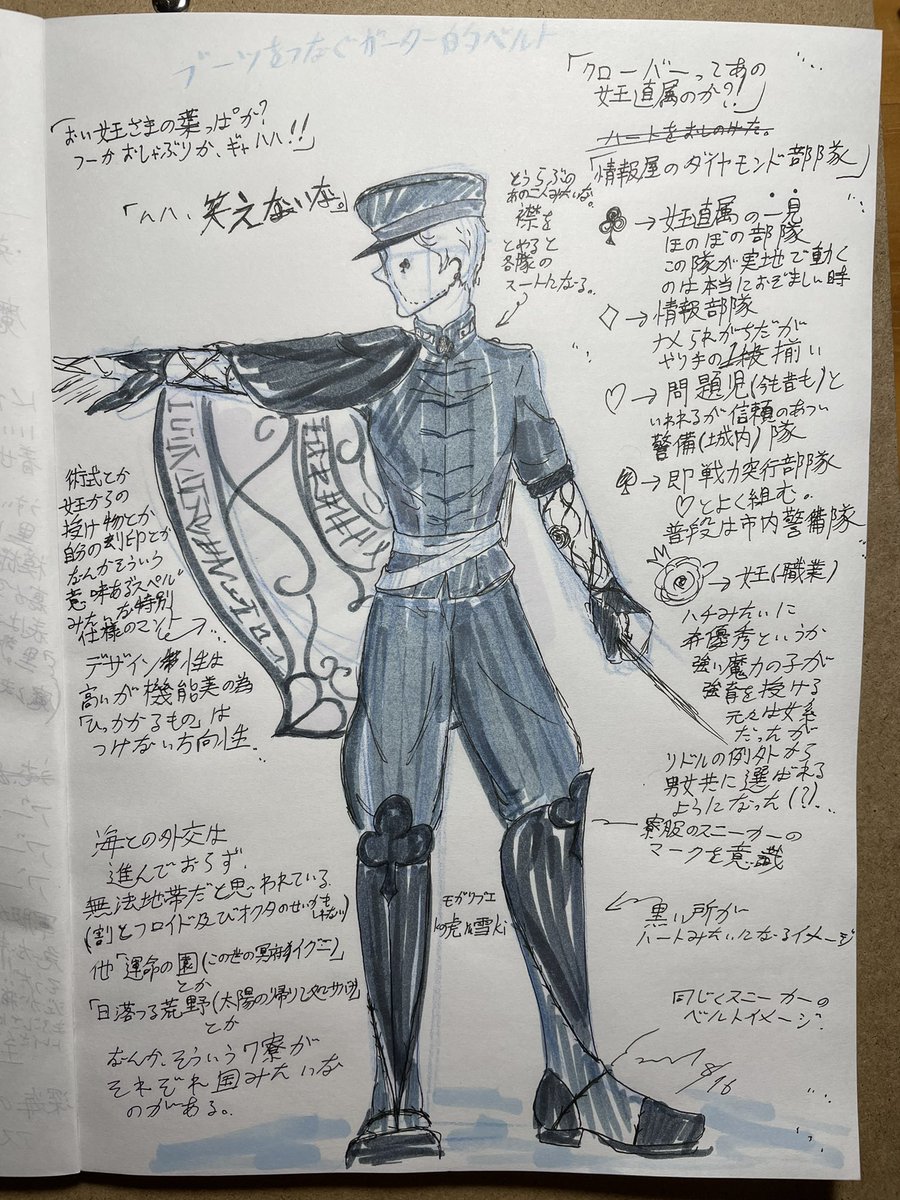 ブーツをつなぐガーター的ベルト
「おい女王さまの葉っぱか?
つーかおしゃぶりか、ギャハハ!!」
「ハハ、笑えないな。」
「クローバーってあの
女王直属のか?!」
ハートをおしのけた。
「情報屋のダイヤモンド部隊」
とうらぶの
あの二人みたいな。
襟を
とやると
各隊の
スートになる。
♣→女王直属の一見
ほのぼの部隊
この隊が実地で動く
のは本当におぞましい時
◇→情報部隊
ナメられがちだが
やり手の1枚揃い
♡→問題児(今も昔も)と
いわれるが信頼のあつい
警備(城内)隊
♠→即戦力突行部隊
♡とよく組む。
普段は市内警備隊
→女王(職業)
ハチみたいに
優秀というか
強い魔力の子が
強育を授ける
元々は女系
だったが
リドルの例外から
男女共に選ばれる
ようになった(?)
寮服のスニーカーの
マークを意識
黒い所が
ハートみたいになるイメージ
同じくスニーカーの
ベルトイメージ?
8/16
術式とか
女王からの
授け物とか
自分の刻印とか
なんかそういう
意味あるスペル
みたいな特別
仕様のマント
デザイン性は
高いが機能美の為
「ひっかかるもの」は
つけない方向性.
海との外交は
進んでおらず.
無法地帯だと思われている.
(割とフロイド及びオクタのせいかもしれない)
他「運命の園(この世の冥府・イグニ)」
とか
「日落つる荒野
とか
なんか、そういう7寮が
それぞれ国みたいな
のがある。
モガリブエ
の虎は雪に